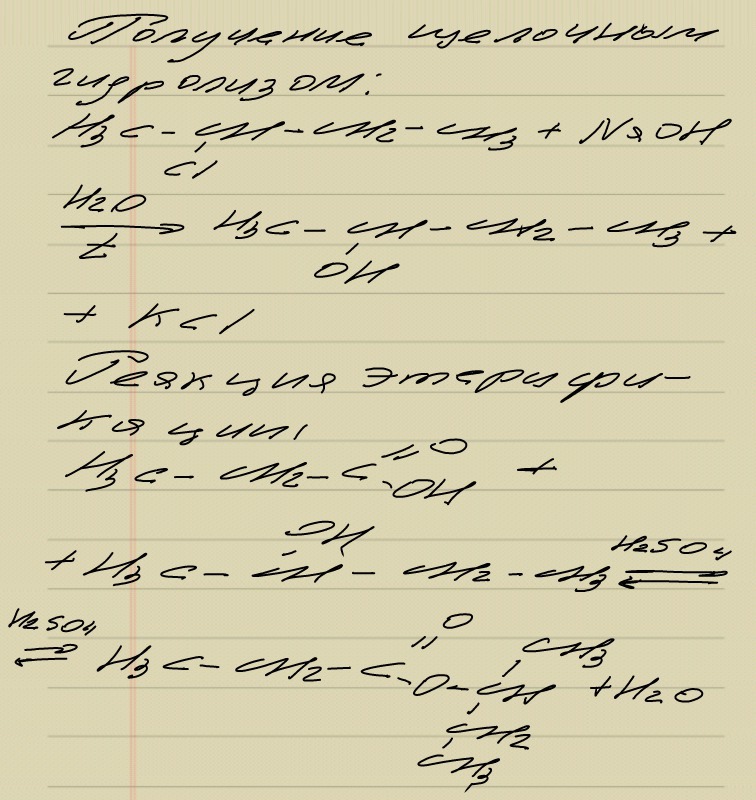 Получение щелочным
гидролизом:
H3C-CH-CH2-CH3 + NaOH
Cl
H2O
t
H3C-CH-CH2-CH3 +
OH
+ KCl
Реакция этерифи-
кации:
H3C-CH2-C=O +
OH
OH
+ H3C-CH-CH2-CH3 H2SO4 ⇌
H2SO4 ⇌
H3C-CH2-C=O
O-CH + H2O
CH3
CH2
CH3